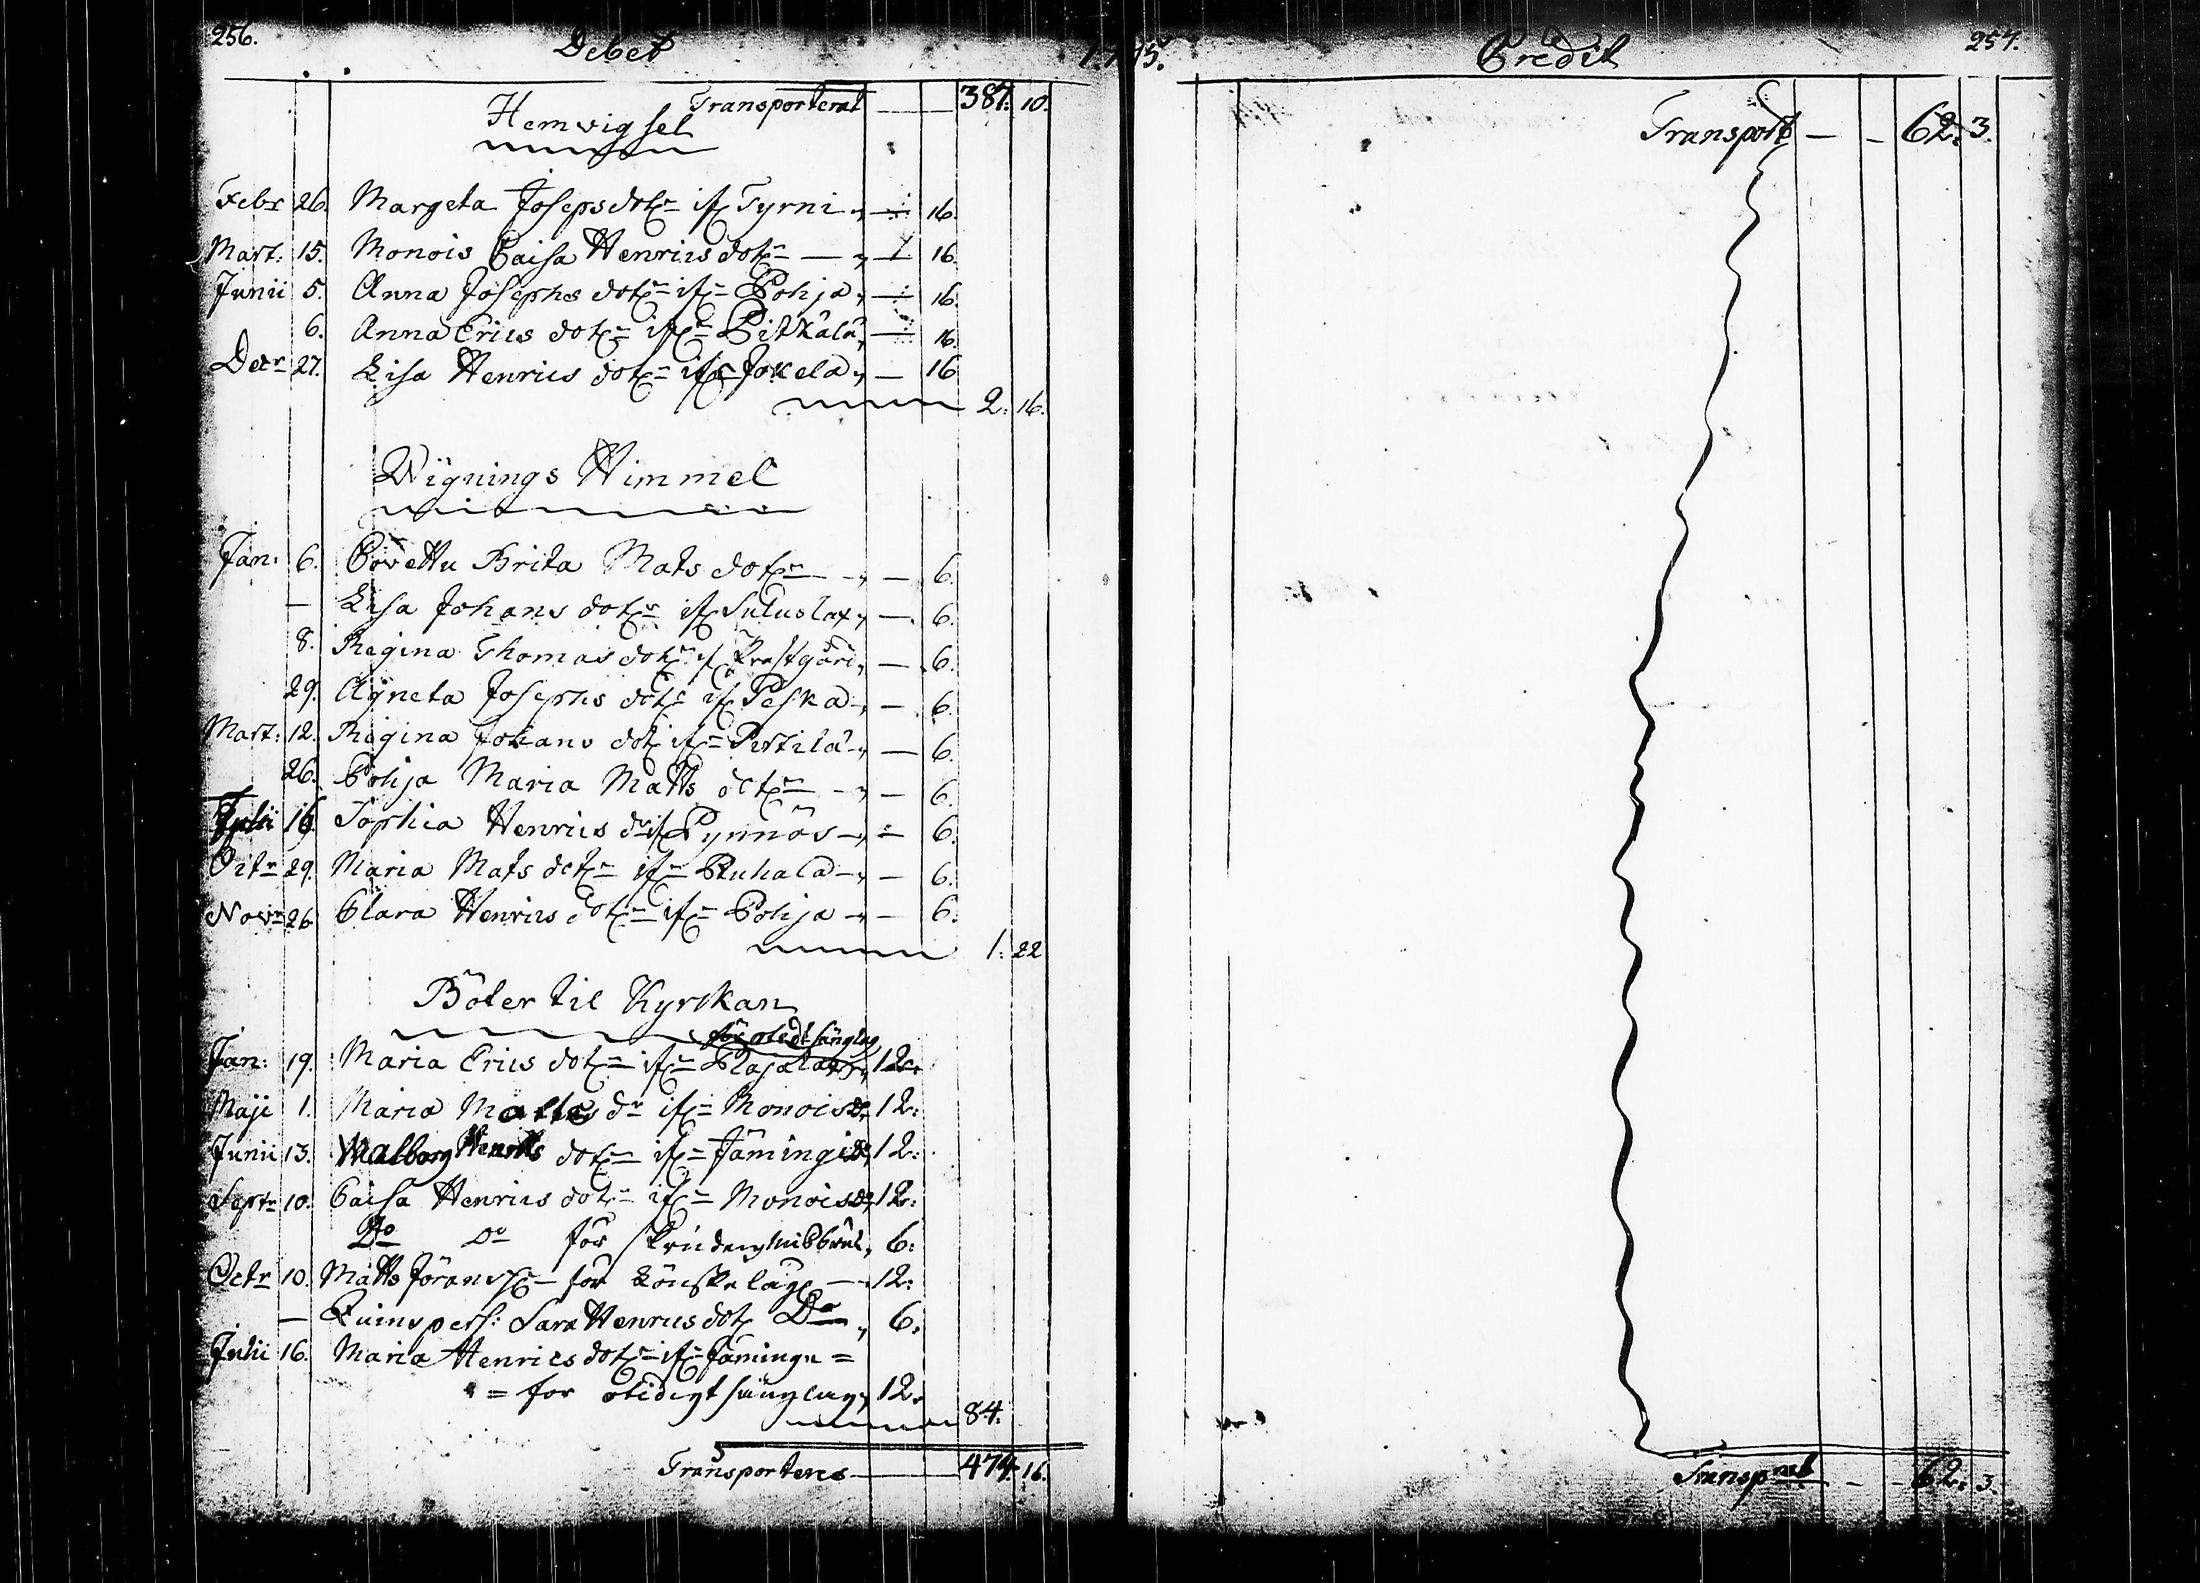 256.
Debet
Transporterat — 387. 10.
Hemvigsel
Febr 26. Margeta Josepsdotr if Tyrni „ — 16.
Mart. 15. Monois Caisa Henrics dotr — „ — 16.
Junii 5. Anna Josephs dotr ifr Pohja „ — 16.
6. Anna Erics dotr ifr Pitkälä „ — 16.
Decr 27. Lisa Henrics dotr ifr Jokela „ — 16
2. 16.
Wignings Himmel
Jan: 6. Brita Mats dotr — „ — 6.
— Lisa Johans dotr if „ — 6.
8. Regina Thomas dotr if Prestgård „ — 6.
29. Agneta Josephs dotr if Peska „ — 6.
Mart: 12. Regina Johans dotr ifr Pertilä „ — 6.
26. Pohja Maria Matts dotr — „ — 6.
Julii 16. Sophia Henrics dr if Pynnös „ — 6.
Octr 29. Maria Mats dotr ifr Ruhala „ — 6.
Novr 26. Clara Henrics dotr ifr Pohja „ — 6.
1. 22
Böter til Kyrkan
för otid. sänglag
Jan: 19. Maria Erics dotr ifr „ 12.
Maji 1. Maria Matts dr ifr Monois Do 12:
Junii 13. Walborg Henrics dotr ifr Jämingi Do 12:
Septr 10. Caisa Henrics dotr ifr Monois Do 12:
Do Do för 6:
Octr 10. Matts Jöransson för Lönskeläge — 12:
— Quinspers: Sara Henrics dotr Do „ 6.
Julii 16. Maria Henrics dotr ifr Jämingi =
= för otidigt sänglag „ 12.
84.
Transporteres — 474. 16.
1795.
Credit
257.
Transport — — 62. 3.
Transport — — 62. 3.